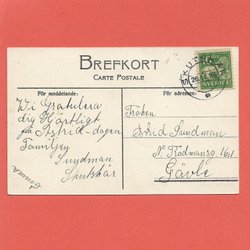 BREFKORT
CARTE POSTALE
För meddelande:
Vi Gratulera
dig Hjärtligt
på Astrid-dagen
Familjen
Sundman
Skutskär
För adressen:
Fröken
Astrid Sundman
N. Rådmansg. 16
Gävle
SVERIGE